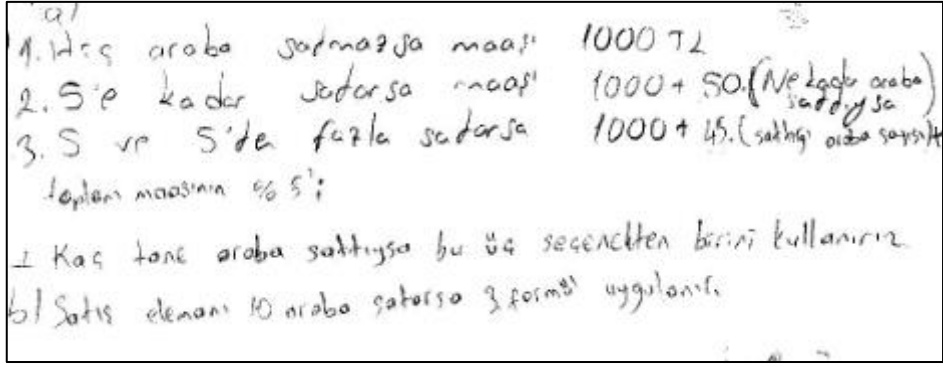 a)
1. Hiç araba satmazsa maaşı 1000 TL
2. 5'e kadar satarsa maaşı 1000 + 50.(Ne kadar araba sattıysa)
3. 5 ve 5'den fazla satarsa 1000 + 45.(sattığı araba sayısı)+
toplam maaşının % 5'i
⊥ Kaç tane araba sattıysa bu üç seçenekten birini kullanırız
b) Satış elemanı 10 araba satarsa 3. formül uygulanır.